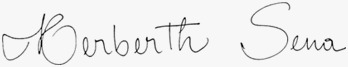 Herberth Sena